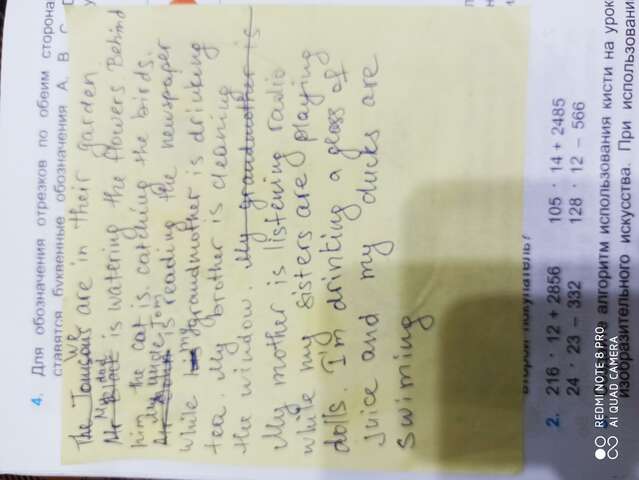 4. Для обозначения отрезков по обеим сторона
ставятся буквенные обозначения А, В, С
We
The Tomsons are in their garden
My dad
Mr Black is watering the flowers Behind
him the cat is catching the birds.
My uncle Tom
is reading the newspaper
while my grandmother is drinking
tea. My brother is cleaning
the window. My grandmother is
My mother is listening radio
while my sisters are playing
dolls I'm drinking a glass of
juice and my ducks are
swiming
второй покупатель?
2. 216 · 12 + 2856 105 · 14 + 2485
24 · 23 – 332 128 · 12 – 566
алгоритм использования кисти на урок
изобразительного искусства. При использовани
REDMI NOTE 8 PRO
AI QUAD CAMERA